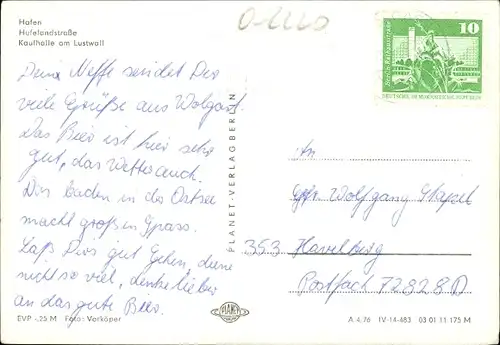 O-2220
Hafen
Hufelandstraße
Kaufhalle am Lustwall
Dein Neffe sendet Dir
viele Grüße aus Wolgast.
Das Bier ist hier sehr
gut, das Wetter auch.
Das baden in der Ostsee
macht großen Spass.
Laß Dirs gut gehen,
nicht so viel, denke lieber
an das gute Bier.
EVP -.25 M Foto: Vorköper
PLANET-VERLAG BERLIN
PLANET
BERLIN
10
DEUTSCHE DEMOKRATISCHE REPUBLIK
An
Gfr. Wolfgang Stapel
353 Havelberg
Postfach 72828 D
A 4/76 IV-14-483 03 01 11 175 M